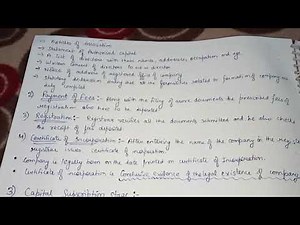 → Articles of Association
→ Statement of Authorised capital
→ A list of directors with their names, addresses, occupation and age.
→ written consent of directors to act as director
→ Notice of address of registered office of company
→ Statutory declaration stating that all the formalities related to formation of company are duly complied
2) Payment of Fees :- Along with the filing of above documents the prescribed fees of registration also have to be deposited
3) Registration :- Registrar verifies all the documents submitted and he also checks the receipt of fees deposited
4) Certificate of Incorporation :- After entering the name of the company in the
registrar issues certificate of incorporation.
• Company is legally born on the date printed on certificate of Incorporation.
• Certificate of incorporation is conclusive evidence of the legal existence of company
3) Capital Subscription stage :-